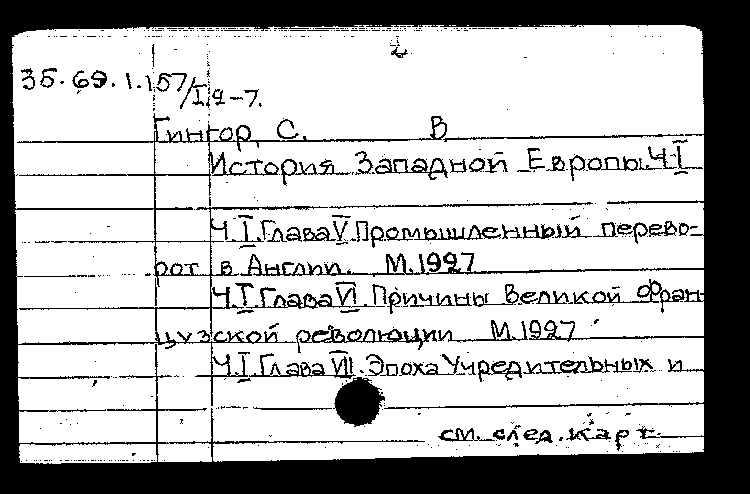 2
35.69.1.157/I.2-7.
Гингор, С. В
История Западной Европы. Ч.I
Ч.I.Глава V.Промышленный перево-
рот в Англии. М.1927
Ч.I.Глава VI.Причины Великой Фран-
цузской революции М.1927
Ч.I.Глава VII.Эпоха Учредительных и
см. след. карт